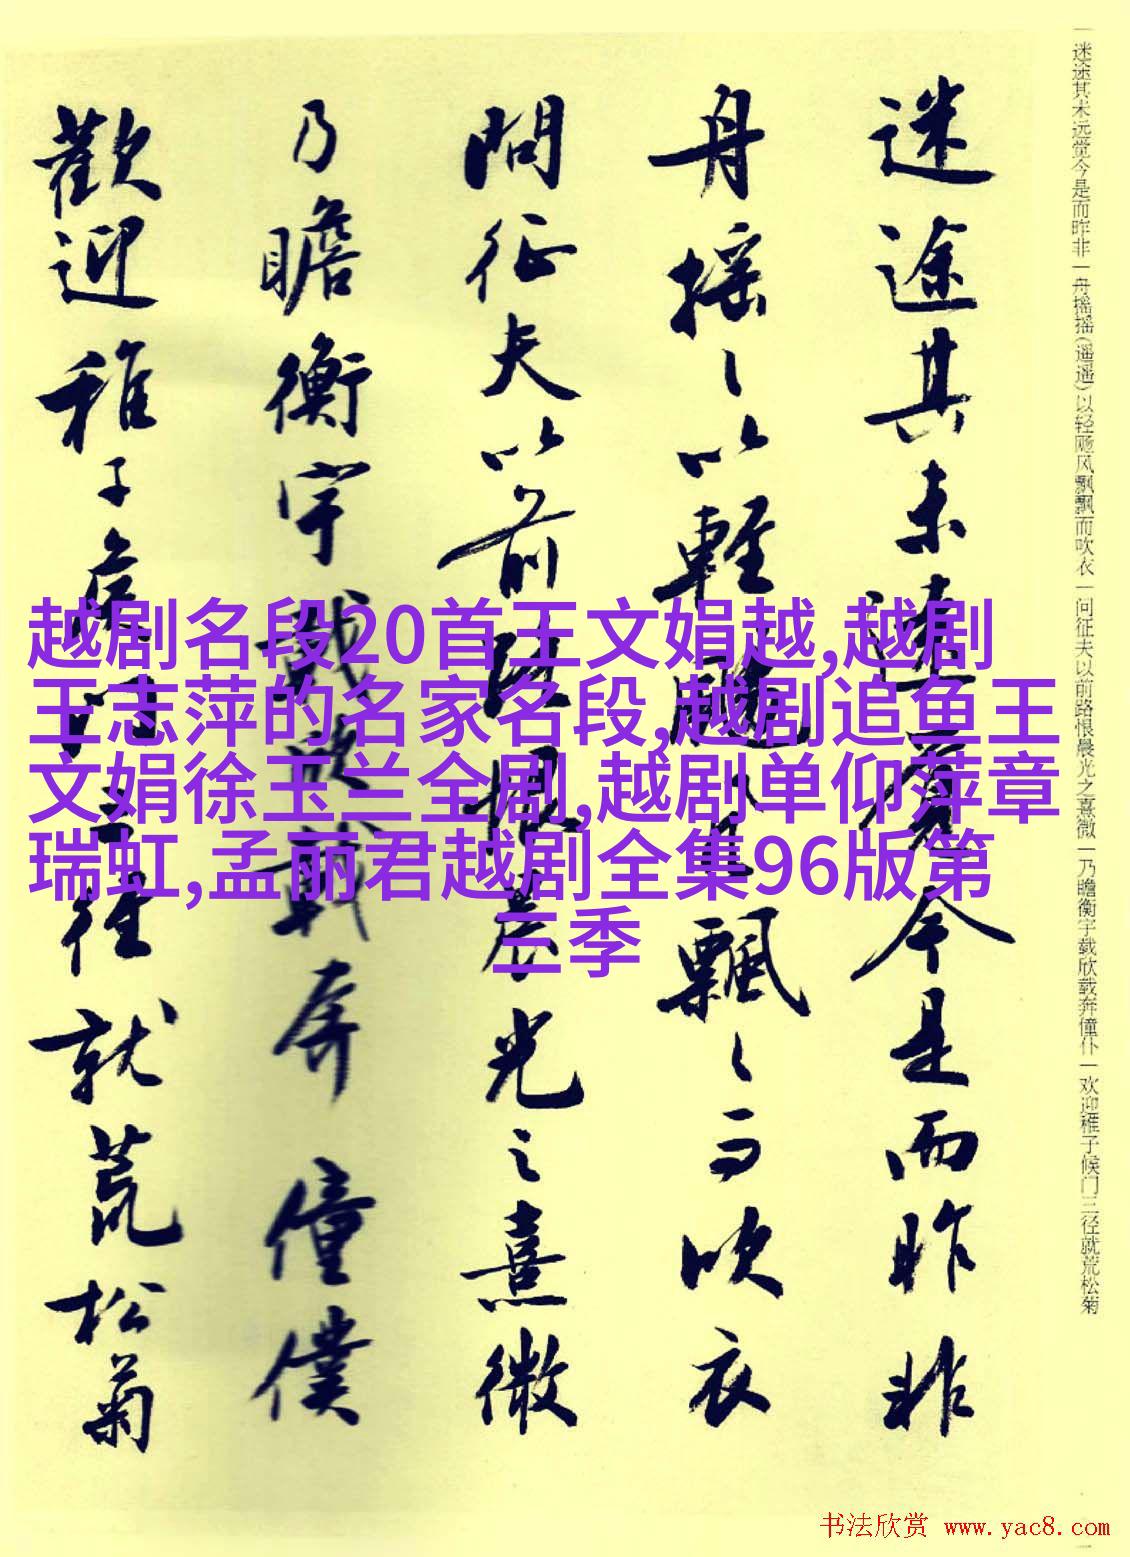 迷途其未远觉今是而昨非一舟摇摇(遥遥)以轻飏风飘飘而吹衣一问征夫以前路恨晨光之熹微一乃瞻衡宇载欣载奔僮仆一欢迎稚子候门三径就荒松菊
迷途其未遠覺今是而昨非
舟摇〻以輕颺風飄〻而吹衣
問征夫以前路恨晨光之熹微
乃瞻衡宇載欣載奔僮僕
歡迎稚子候門三徑就荒松菊
越剧名段20首王文娟越,越剧
王志萍的名家名段,越剧追鱼王
文娟徐玉兰全剧,越剧单仰萍章
瑞虹,孟丽君越剧全集96版第
三季
书法欣赏 www.yac8.com